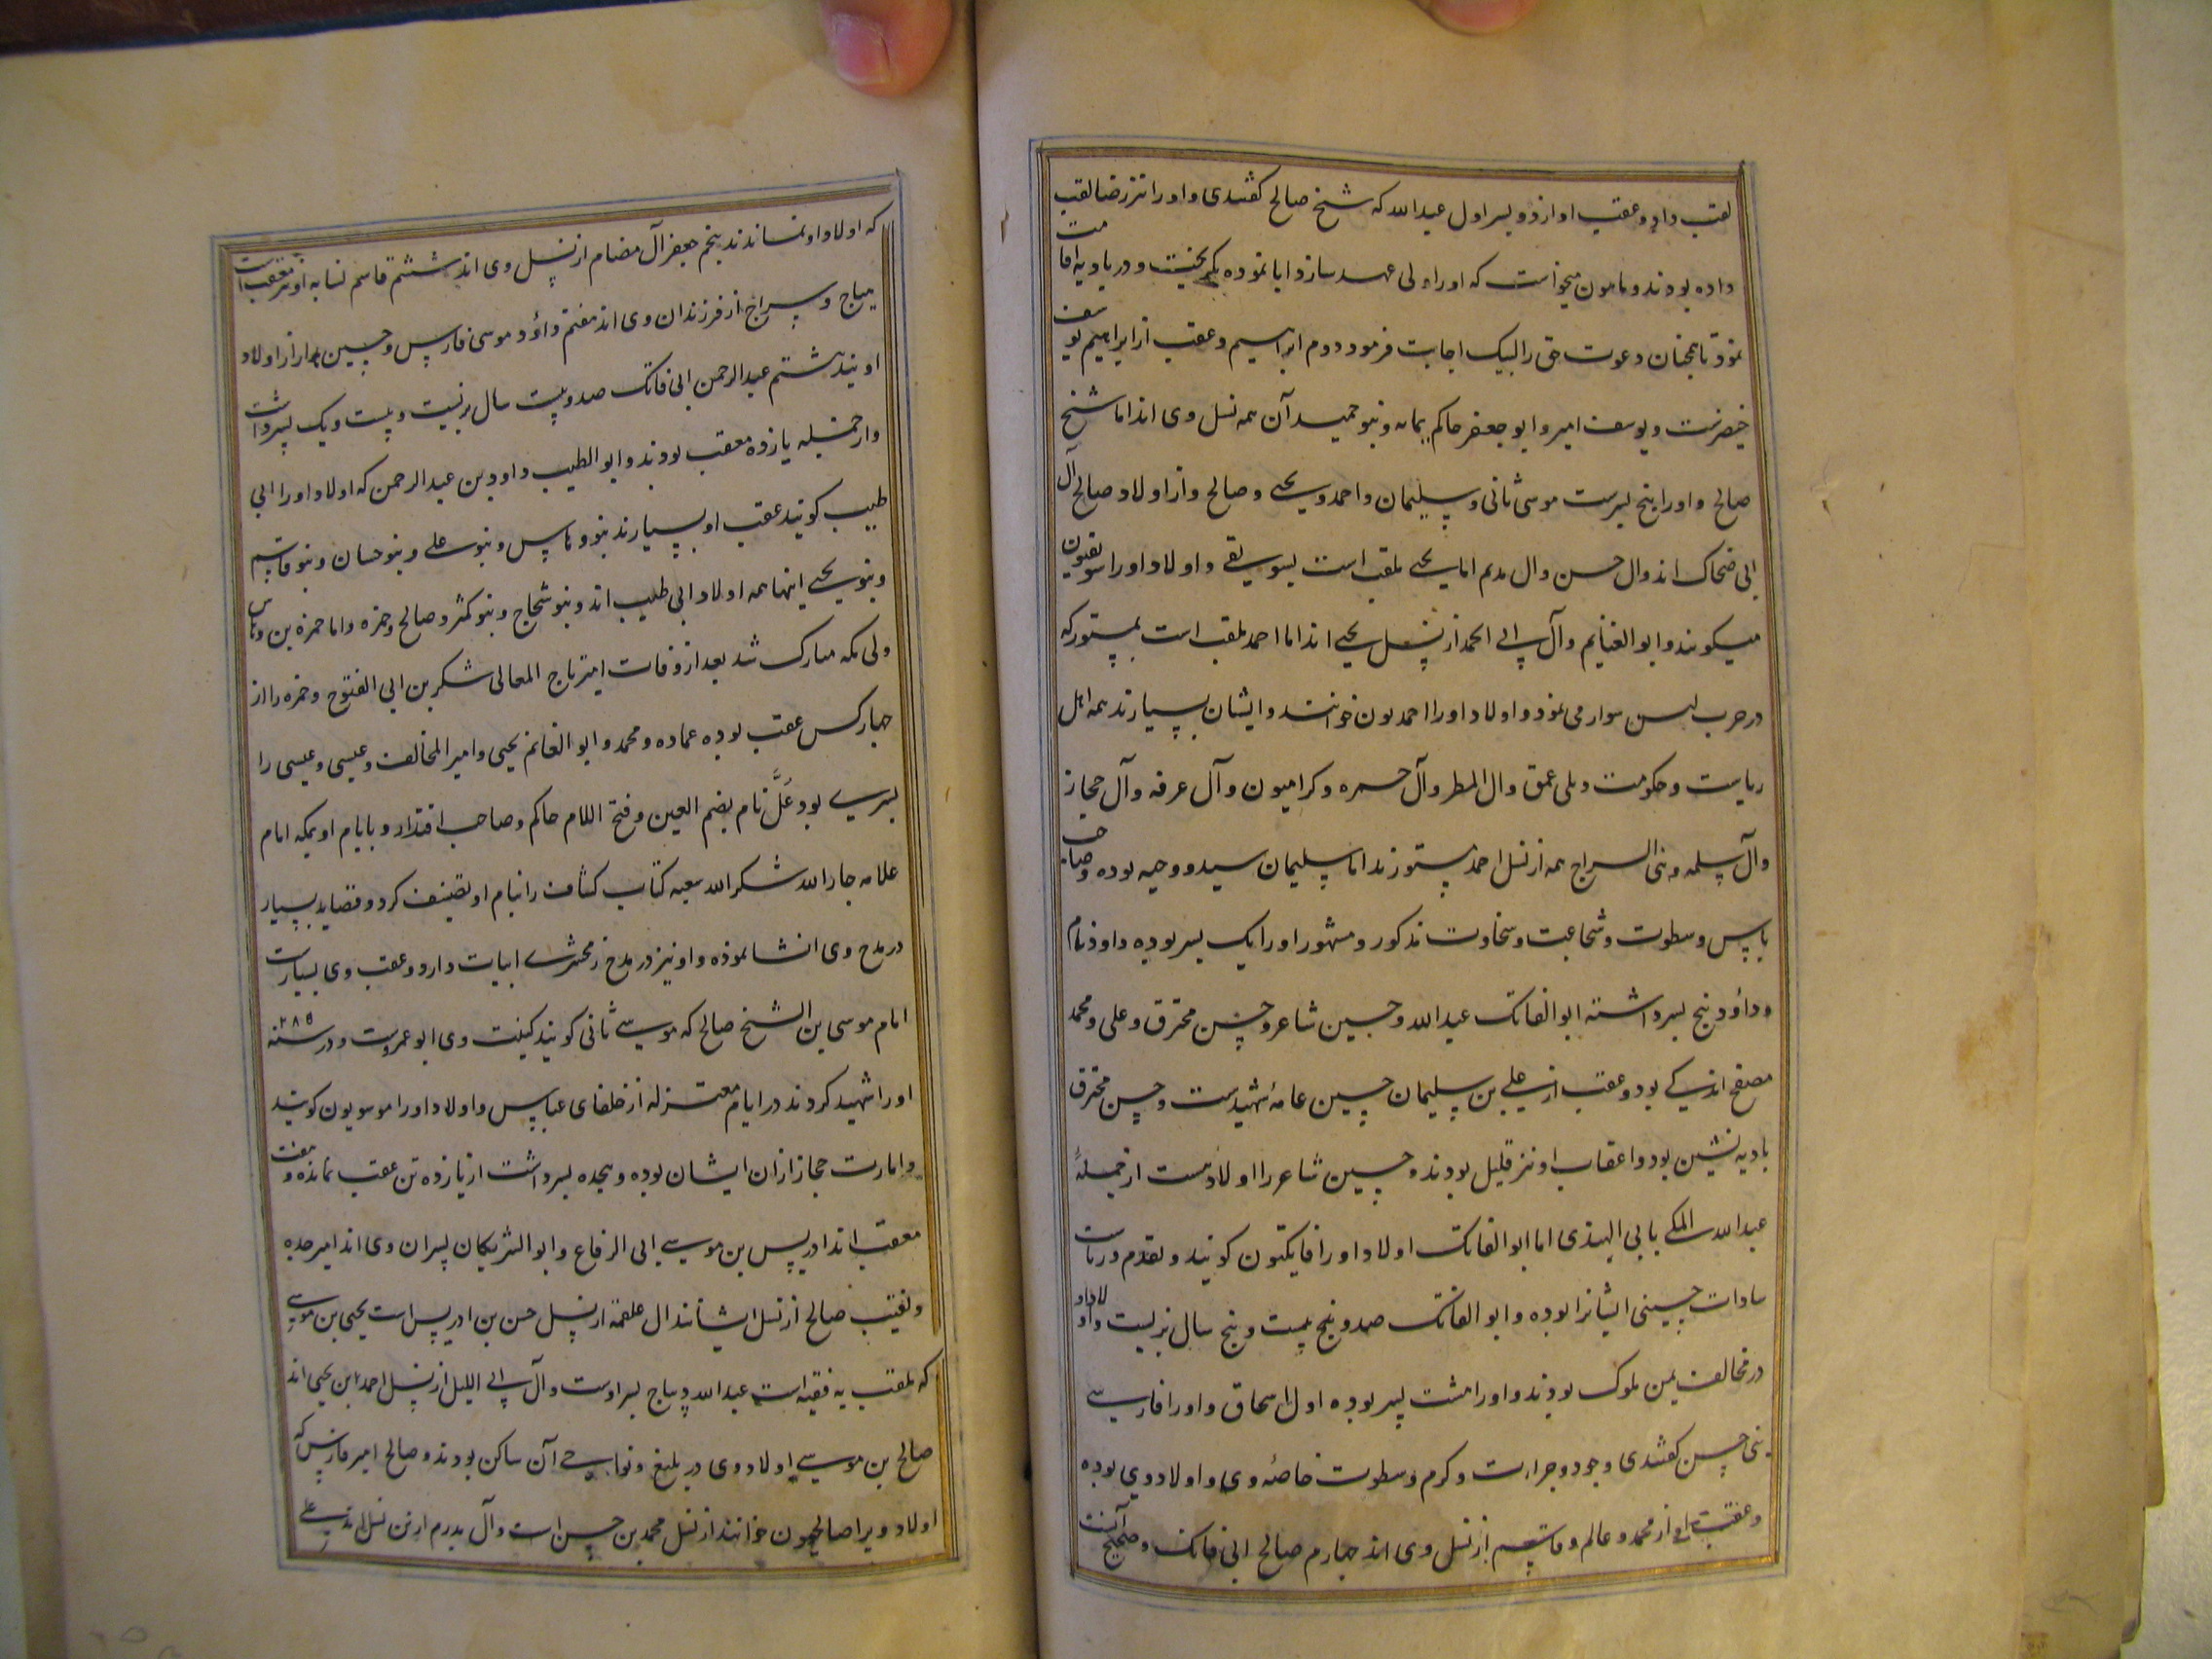 لقب داد و عقب او از دو پسر اول عبدالله که شیخ صالح گفتندی و او را نیز رضا لقب
داده بودند و مامون میخواست که او را ولی عهد سازد ابا نموده بگریخت و در بادیه اقامت
نمود تا همچنان دعوت حق را لبیک اجابت فرمود دوم ابراهیم و عقب از ابراهیم یوسف
خیضرست و یوسف امیر و ابو جعفر حاکم یمامه و بنو حمیدان همه نسل وی اند اما شیخ
صالح و او را پنج پسرست موسی ثانی و سلیمان و احمد و یحیی و صالح و از اولاد صالح آل
ابی ضحاک اند وال حسن وال مدیم اما یحیی ملقب است بسویقی و اولاد او را سویقیون
میگویند و ابو الغنایم و آل ابی الحمد از نسل یحیی اند اما احمد ملقب است بمستور که
در حرب سوار می نمود و اولاد او را احمدیون خوانند و ایشان بسیارند همه اهل
ریاست و حکومت و علی عمق وال المطر وآل حمره و کرامیون وآل عرفه وآل حجاز
وآل سلمه و بنی السراج همه از نسل احمد مستورند اما سلیمان سید و وجیه بوده و صاحب
باس و سطوت و شجاعت و سخاوت مذکور و مشهور او را یک پسر بوده داود نام
و داؤد پنج پسر داشته ابو الفاتک عبدالله و حسین شاعر و حسن محترق و علی و محمد
مصفح اندکی بود و عقب از علی بن سلیمان حسین عامۀ شهیدست و حسن محترق
بادیه نشین بود و اعقاب او نیز قلیل بودند و حسین شاعر را اولاد هست از جملۀ
عبدالله المکی بابی الهندی اما ابوالفاتک اولاد او را فاتکیون گویند و تقدم در ریاست
سادات حسینی ایشانرا بوده و ابو الفاتک صد و بیست و پنج سال بزیست و اولاد او
در مخالف یمن ملوک بودند و او را هشت پسر بوده اول اسحاق و او را فارس
بنی حسن گفتندی و جود و جرات و کرم و سطوت خاصۀ وی و اولاد وی بوده
و عقب او از محمد و عالم و قاسم از نسل وی اند چهارم صالح ابی فاتک و صحیح آنست
که اولاد او نماندند پنجم جعفر آل مضام از نسل وی اند ششم قاسم نسابه او نیز معقب است
میاج و سراج از فرزندان وی اند هفتم داؤد و موسی فارس و حسین از اولاد
اویند هشتم عبدالرحمن ابی فاتک صد و بیست سال بزیست و بیست و یک پسر داشت
و از جمله یازده معقب بودند و ابو الطیب داود بن عبدالرحمن که اولاد او را ابی
طیب گویند عقب او بسیارند بنو وهاس و بنو علی و بنو حسان و بنو قاسم
و بنو یحیی اینها همه اولاد ابی طیب اند و بنو شجاح و بنو مکثر و صالح و حمزه و اما حمزه بن وهاس
ولی مکه مبارک شد بعد از وفات امیر تاج المعالی شکر بن ابی الفتوح و حمزه را از
چهار کس عقب بوده عماده و محمد و ابو الغانم یحیی و امیر المخالف و عیسی و عیسی را
پسری بود عُلَّ نام بضم العین و فتح اللام حاکم و صاحب اقتدار و بایام او بمکه امام
علامه جارالله شکرالله سعیه کتاب کشاف را بنام او تصنیف کرد و قصاید بسیار
در مدح وی انشا نموده و او نیز در مدح زمخشری ابیات دارد و عقب وی بسیارست
امام موسی بن الشیخ صالح که موسی ثانی گویند کنیت وی ابو عمروست و در سنه ۲۸۵
او را شهید کردند در ایام معتزله از خلفای عباس و اولاد او را موسویون گویند
و امارت حجاز ازان ایشان بوده و هجده پسر داشت از یازده تن عقب نمانده و هفت
معقب اند ادریس بن موسی ابی الرفاع و ابو الشریکان پسران وی اند امیر جده
و نقیب صالح از نسل ایشانند ال علقمه از نسل حسن بن ادریس است یحیی بن موسی
که ملقب به فقیه است عبدالله دیباج پسر اوست وآل ابی اللیل از نسل احمد ابن یحیی اند
صالح بن موسی اولاد وی در بلیغ و نواحی آن ساکن بودند و صالح امیر فارس که
اولاد ویرا صالحیون خوانند از نسل محمد بن حسن است وآل بدرم از تن نسل اند علی